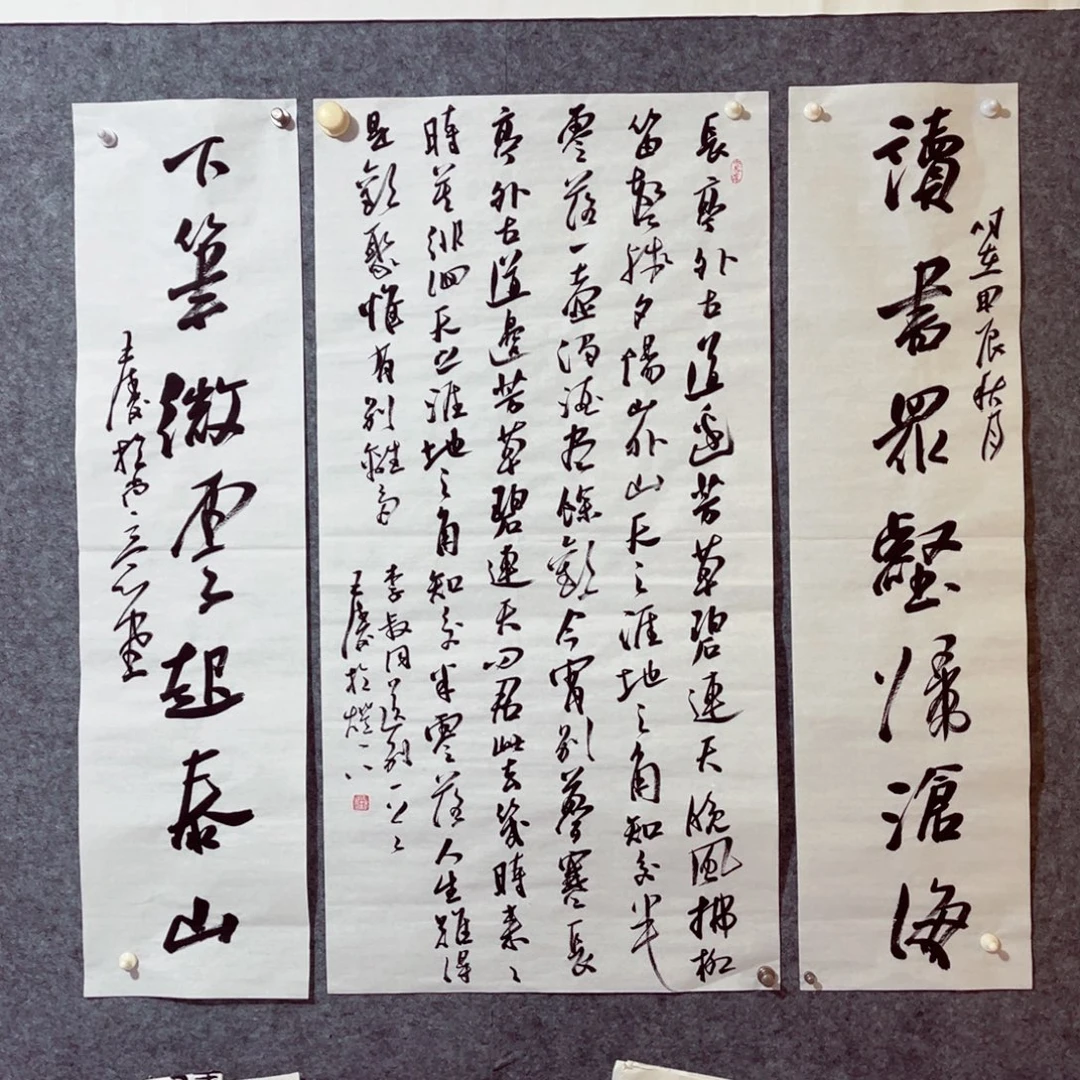 時在甲辰秋月
讀書眾壑歸滄海
長亭外古道邊芳草碧連天晚風拂柳
笛聲殘夕陽山外山天之涯地之角知交半
零落一壺濁酒盡餘歡今宵別夢寒長
亭外古道邊芳草碧連天問君此去幾時來〻
時莫徘徊天之涯地之角知交半零落人生難得
是歡聚惟有別離多
李叔同送別
王慶於
下筆微雲起泰山
王慶於尚